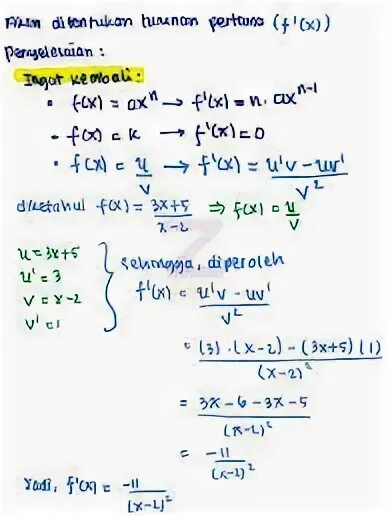 Akan ditentukan turunan pertama (f'(x))
Penyelesaian :
Ingat kembali :
• f(x) = ax^n → f'(x) = n. ax^(n-1)
- f(x) = k → f'(x) = 0
• f(x) = u/v → f'(x) = (u'v - uv')/v^2
diketahui f(x) = (3x+5)/(x-2) ⇒ f(x) = u/v
u = 3x+5
u' = 3
v = x-2
v' = 1
sehingga, diperoleh
f'(x) = (u'v - uv')/v^2
= ((3) . (x-2) - (3x+5) (1))/(x-2)^2
= (3x - 6 - 3x - 5)/(x-2)^2
= -11/(x-2)^2
Jadi, f'(x) = -11/(x-2)^2